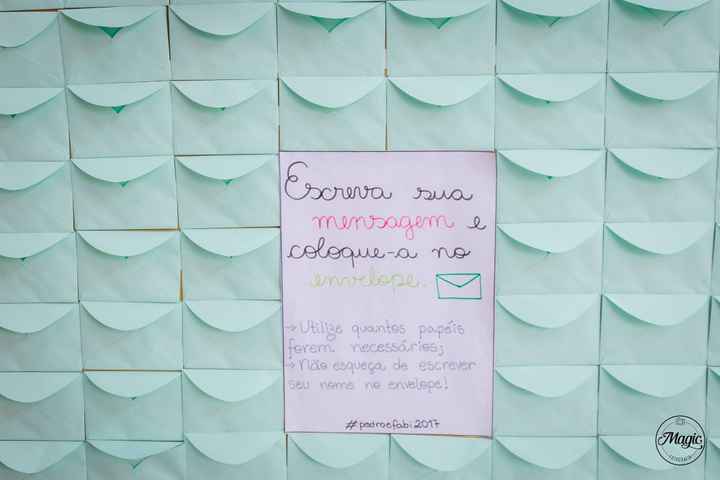 Escreva sua
mensagem e
coloque-a no
envelope.
→ Utilize quantos papéis
forem necessários;
→ Não esqueça de escrever
seu nome no envelope!
#pedroefabi2017
Magic